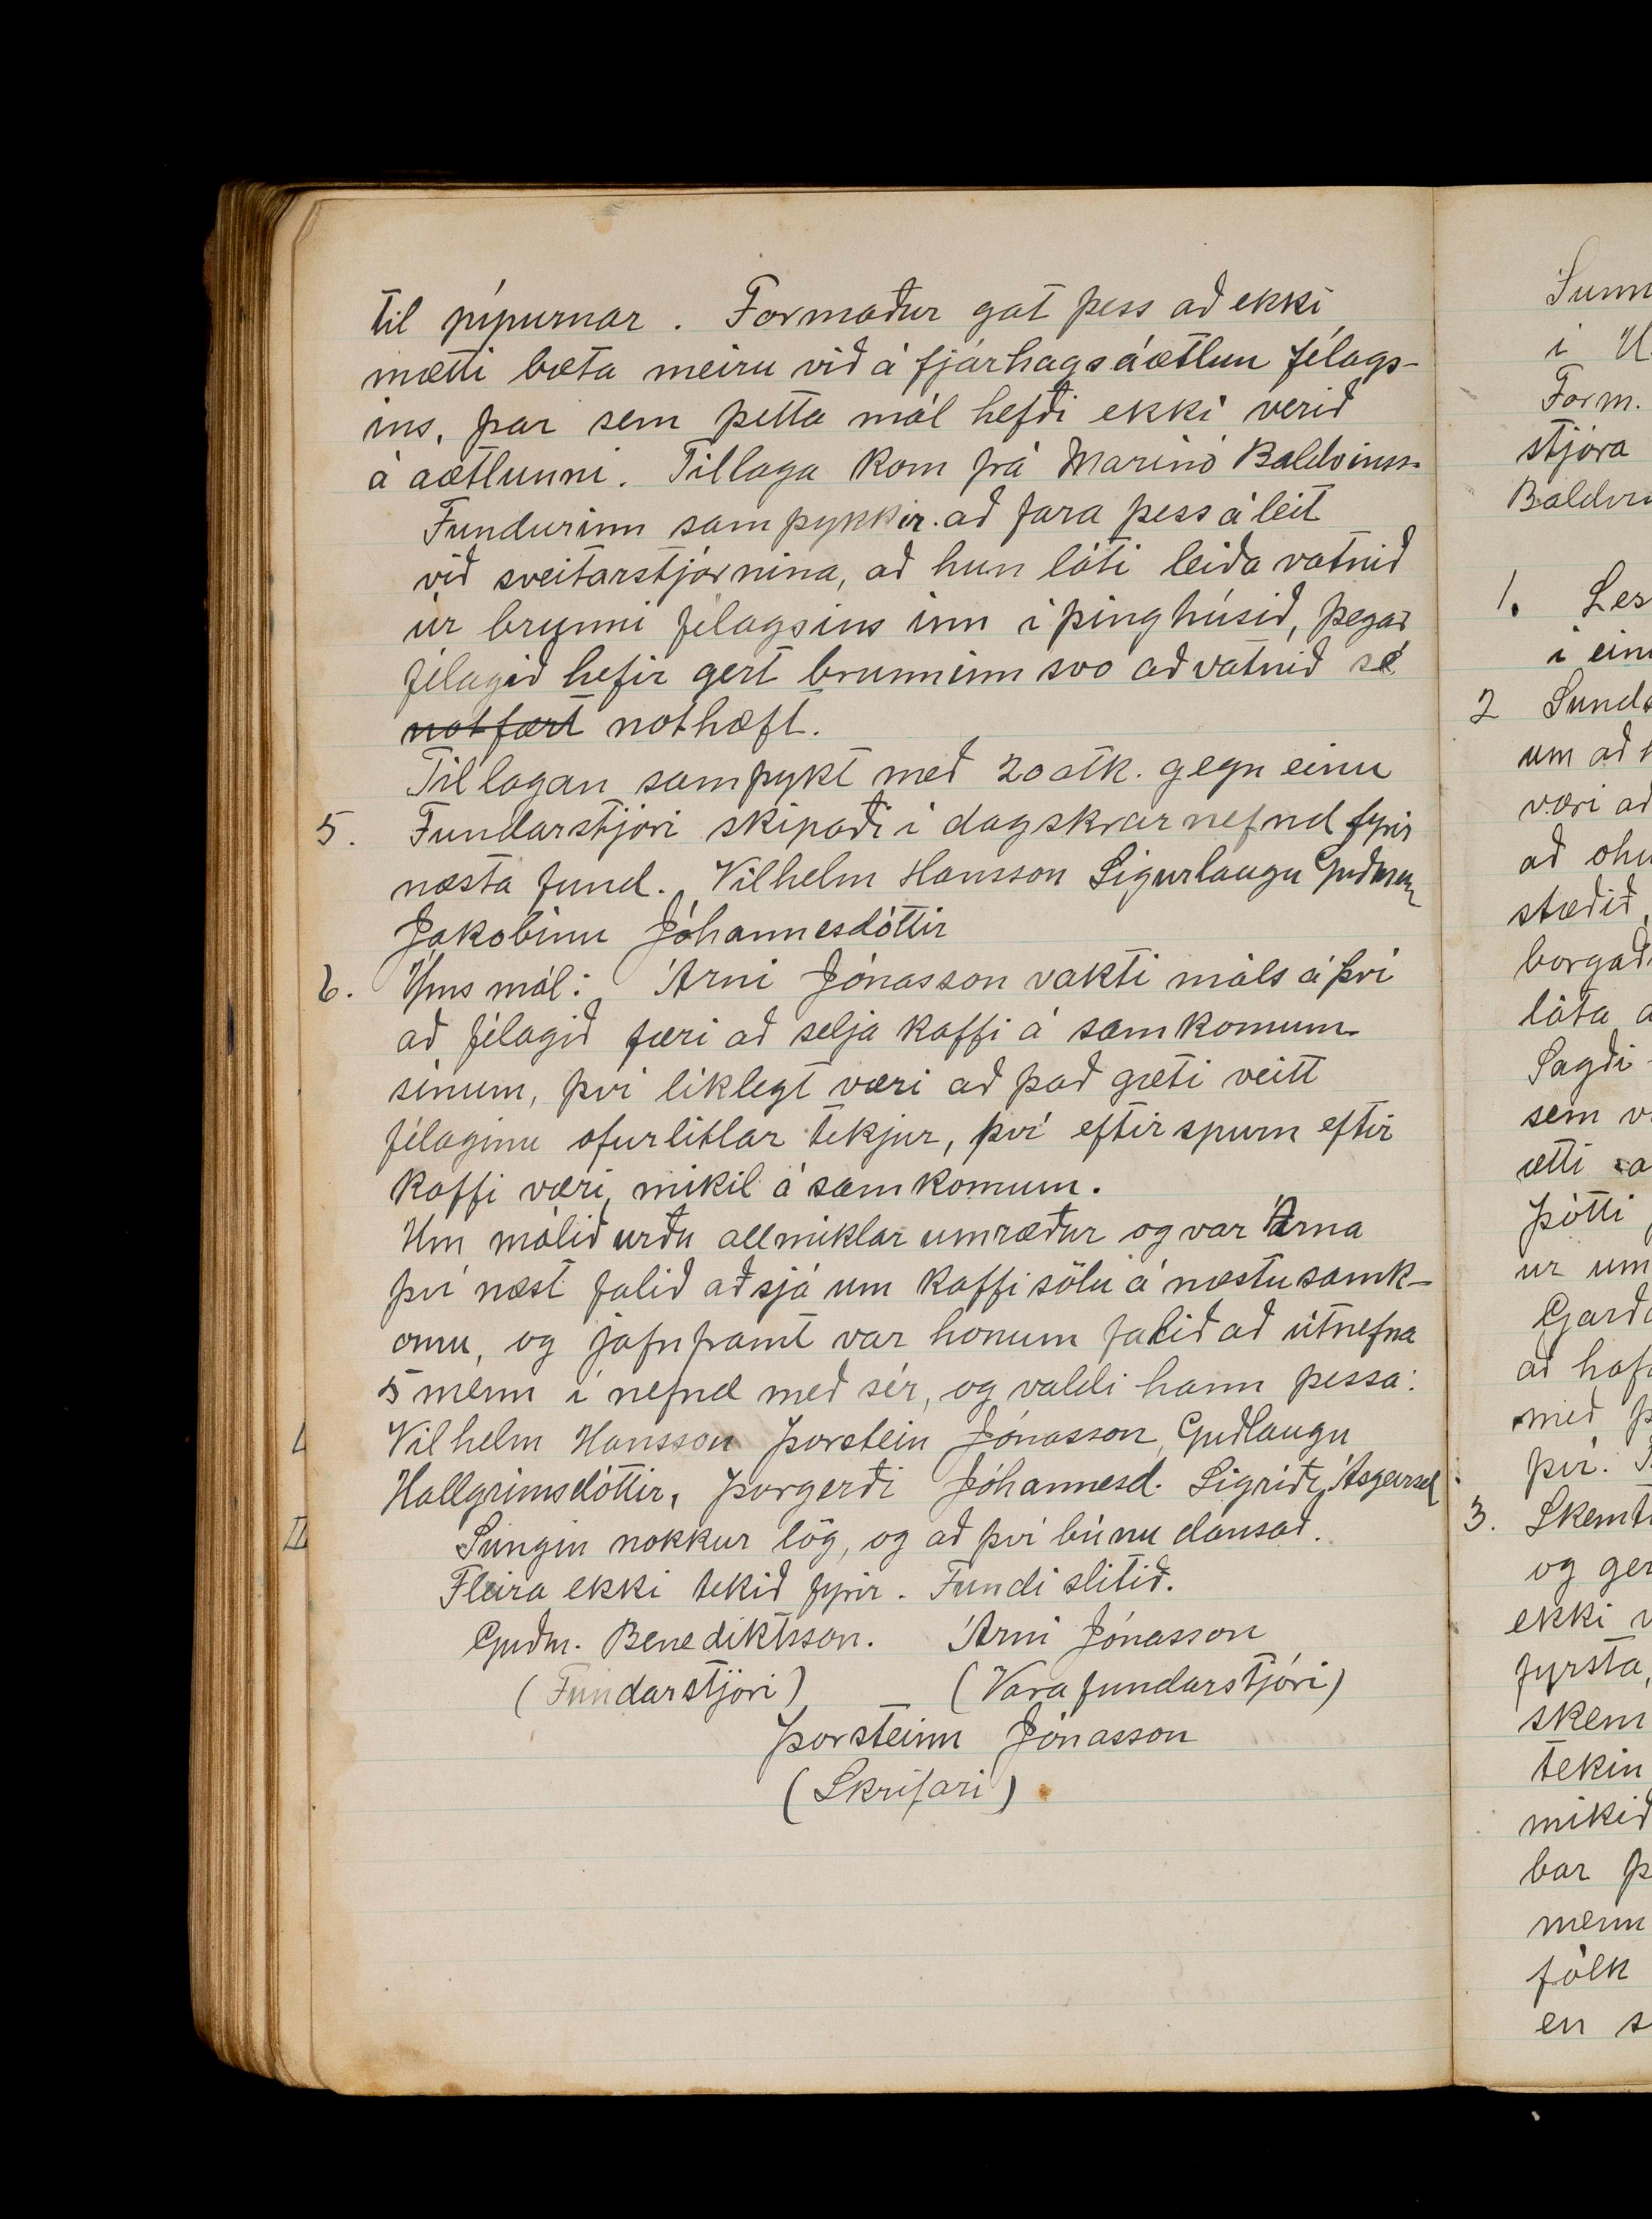 til pípurnar. Formaður gat þess að ekki
mætti bæta meiru við á fjárhagsáætlun félags-
ins, þar sem þetta mál hefði ekki verið
á aætlunni. Tillaga kom frá Marinó Baldvinss.
Fundurinn samþykkir að fara þess á leit
við sveitarstjórnina, að hun láti leiða vatnið
úr brunni félagsins inn í þinghúsið, þegar
félagið hefir gert brunninn svo að vatnið sé
notfært nothæft.
Tillagan samþykt með 20 atk. gegn einu
5. Fundarstjóri skipaði í dagskrarnefnd fyrir
næsta fund. Vilhelm Hansson Sigurlaugu Guðmun
Jakobínu Jóhannesdóttir
6. Yms mál: Árni Jónasson vakti máls á því
að félagið færi að selja kaffi á samkomum
sínum, því líklegt væri að það gæti veitt
félaginu ofurlitlar tekjur, því eftirspurn eftir
kaffi væri mikil á samkomum.
Um málið urðu allmiklar umræður og var Árna
því næst falið að sjá um kaffisölu á næstu samk-
omu, og jafnframt var honum falið að útnefna
5 menn í nefnd með sér, og valdi hann þessa:
I Vilhelm Hansson Þorstein Jónasson, Guðlaugu
Hallgrímsdóttir, Þorgerði Jóhannesd. Sigríði Ásgeirsd
II Sungin nokkur lög, og að því búnu dansað.
Fleira ekki tekið fyrir. Fundi slitið.
Guðm. Benediktsson. Árni Jónasson
(Fundarstjóri) (Vara fundarstjóri)
Þorsteinn Jónasson
(Skrifari)
í
Form.
stjóra
1. Les
í ein
2 Sunds
um að
væri að
að
stæðið,
borgað
láta a
Sagði
sem v
ætti a
Þótti
ur um
Garða
að hafa
með þ
því.
3. Skemt
og ger
ekki v
fyrsta,
skem
tekin
mikið
bar þ
menn
fólk
en s